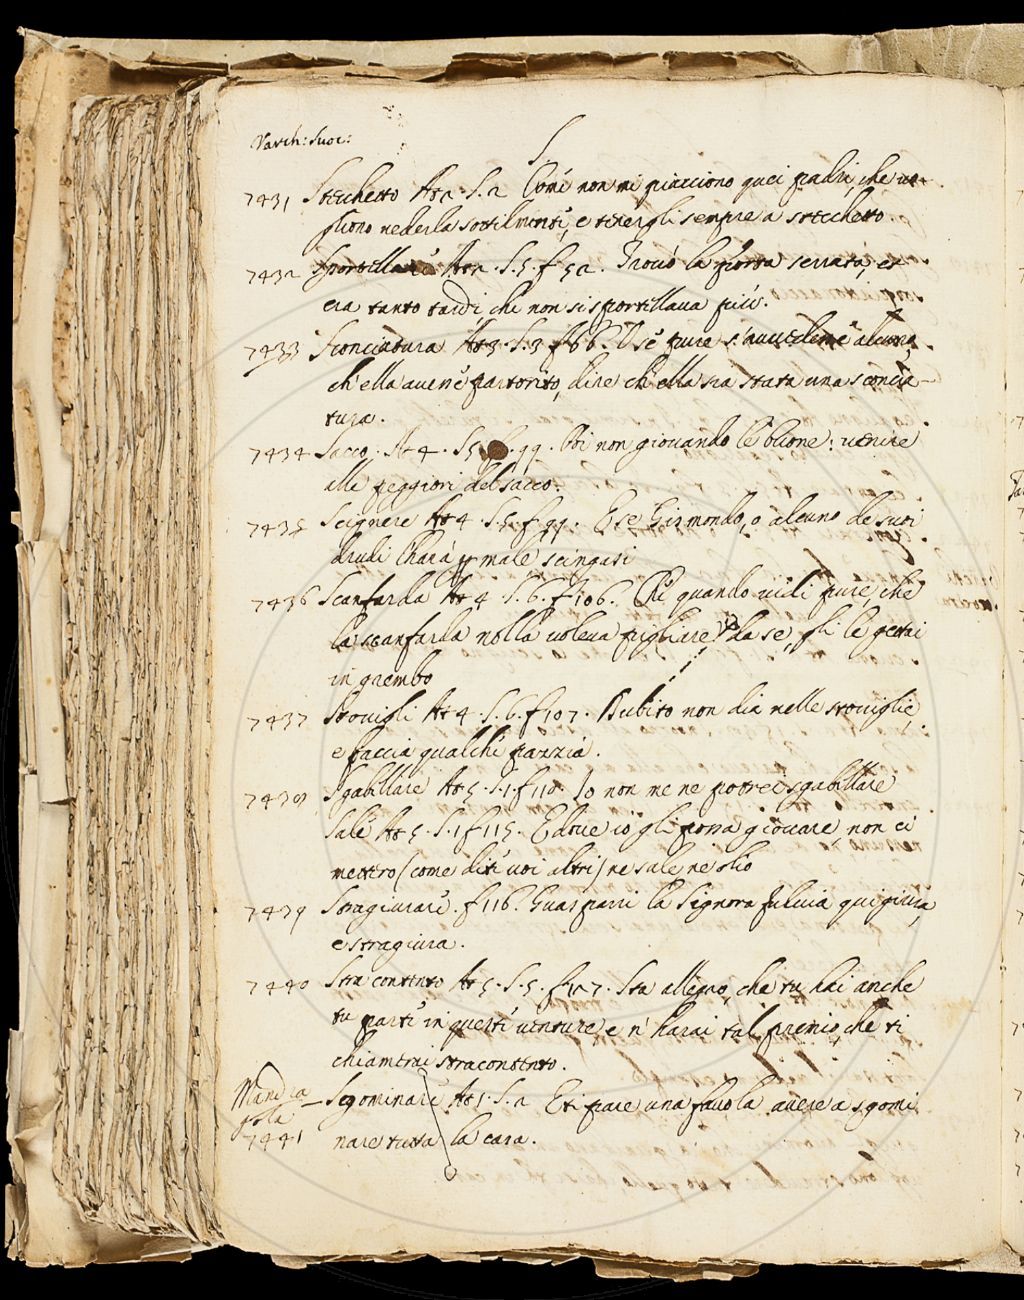 Varch: Suoc:
S.
7431 Stecchetto At 2. S. 2 Come non mi piacciono quei padri, che uo-
gliono uederla sottilmente, e tenergli sempre a stecchetto.
7432 Sportillare At 2. S. 5. f 52. Trouò la porta serrata, et
era tanto tardi che non si sportillaua più.
7433 Sconciatura At 3. S. 3 f 66. O se pure s'auuedeme alcuno,
ch'ella auere partorito, dire ch'ella sia stata una sconcia-
tura.
7434 Sacco. At 4. S 5 f. 99. Poi non giouando le buone: uenire
alle peggiori del sacco.
7435 Scignere At 4. S. 5. f 99. E se Gismondo, o alcuno de suoi
drudi l'harà p male scingasi
7436 Scanfarda At 4. S. 6. f 106. Che quando uidi pure, che
la scanfarda nolla uoleua pigliare da se, gli le gettai
in grembo
7437 Stouigli At 4. S. 6. f 107. Dubito non dia nelle stouiglie,
e faccia qualche pazzia.
7438 Sgabellare At 5. S. 1. f 110. Io non me ne potrei sgabellare
Sale At 5. S. 1 f 115. E doue io gli possa giouare, non ci
metterò (come dite uoi altri) ne sale ne olio
7439 Stragiurare. f 116. Guasparri la Signora Fuluia qui giura,
e stragiura.
7440 Stra contento At 5. S. 5. f 127. Sta allegro, che tu hai anche
tu parte in queste uenture, e n'harai tal premio, che ti
chiamerai stracontento.
Mandra
gola
7441 Sgominare At 1. S. 2 Et pare una fauola auere a sgomi
nare tutta la casa.